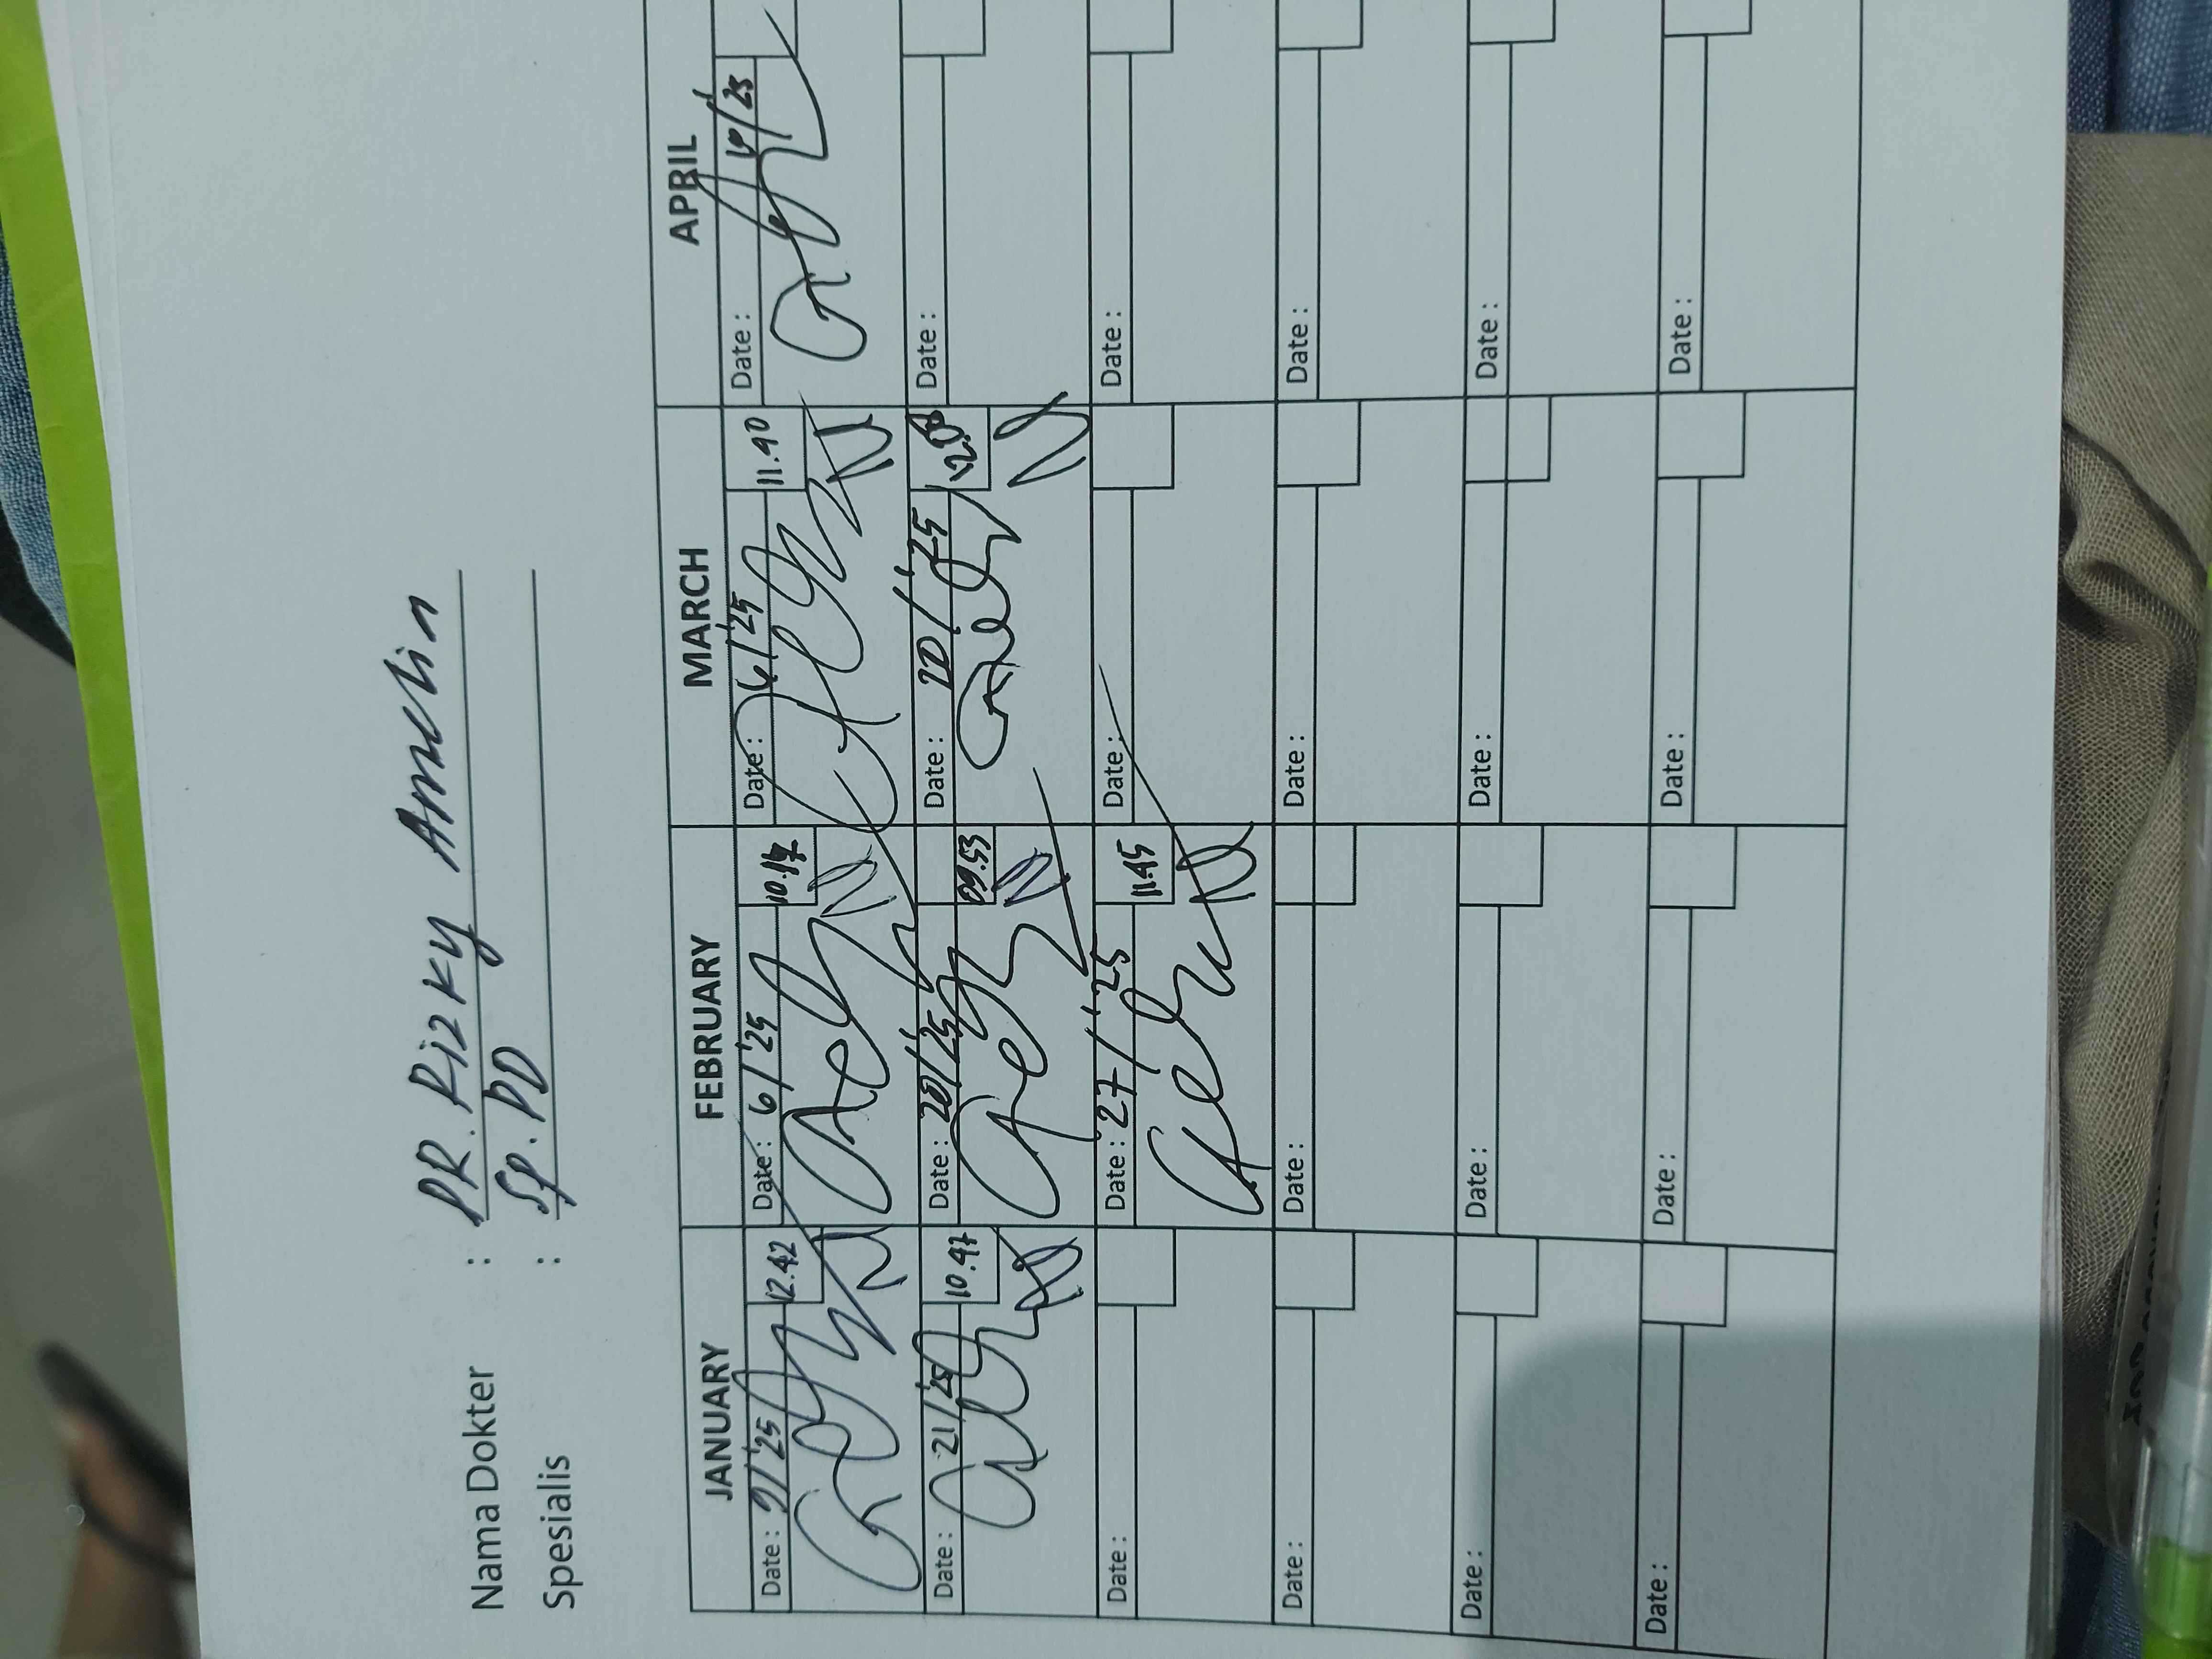 Nama Dokter : DR. Rizky Amelia
Spesialis : Sp. PD
JANUARY FEBRUARY MARCH APRIL
Date : 9/'25 12.42 Date : 6/'25 10.17 Date : 6/'25 11.40 Date :
Date : 21/'25 10.47 Date : 20/'25 09.53 Date : 20/'25 Date :
Date : Date : 27/'25 11.45 Date : Date :
Date : Date : Date : Date :
Date : Date : Date : Date :
Date : Date : Date : Date :